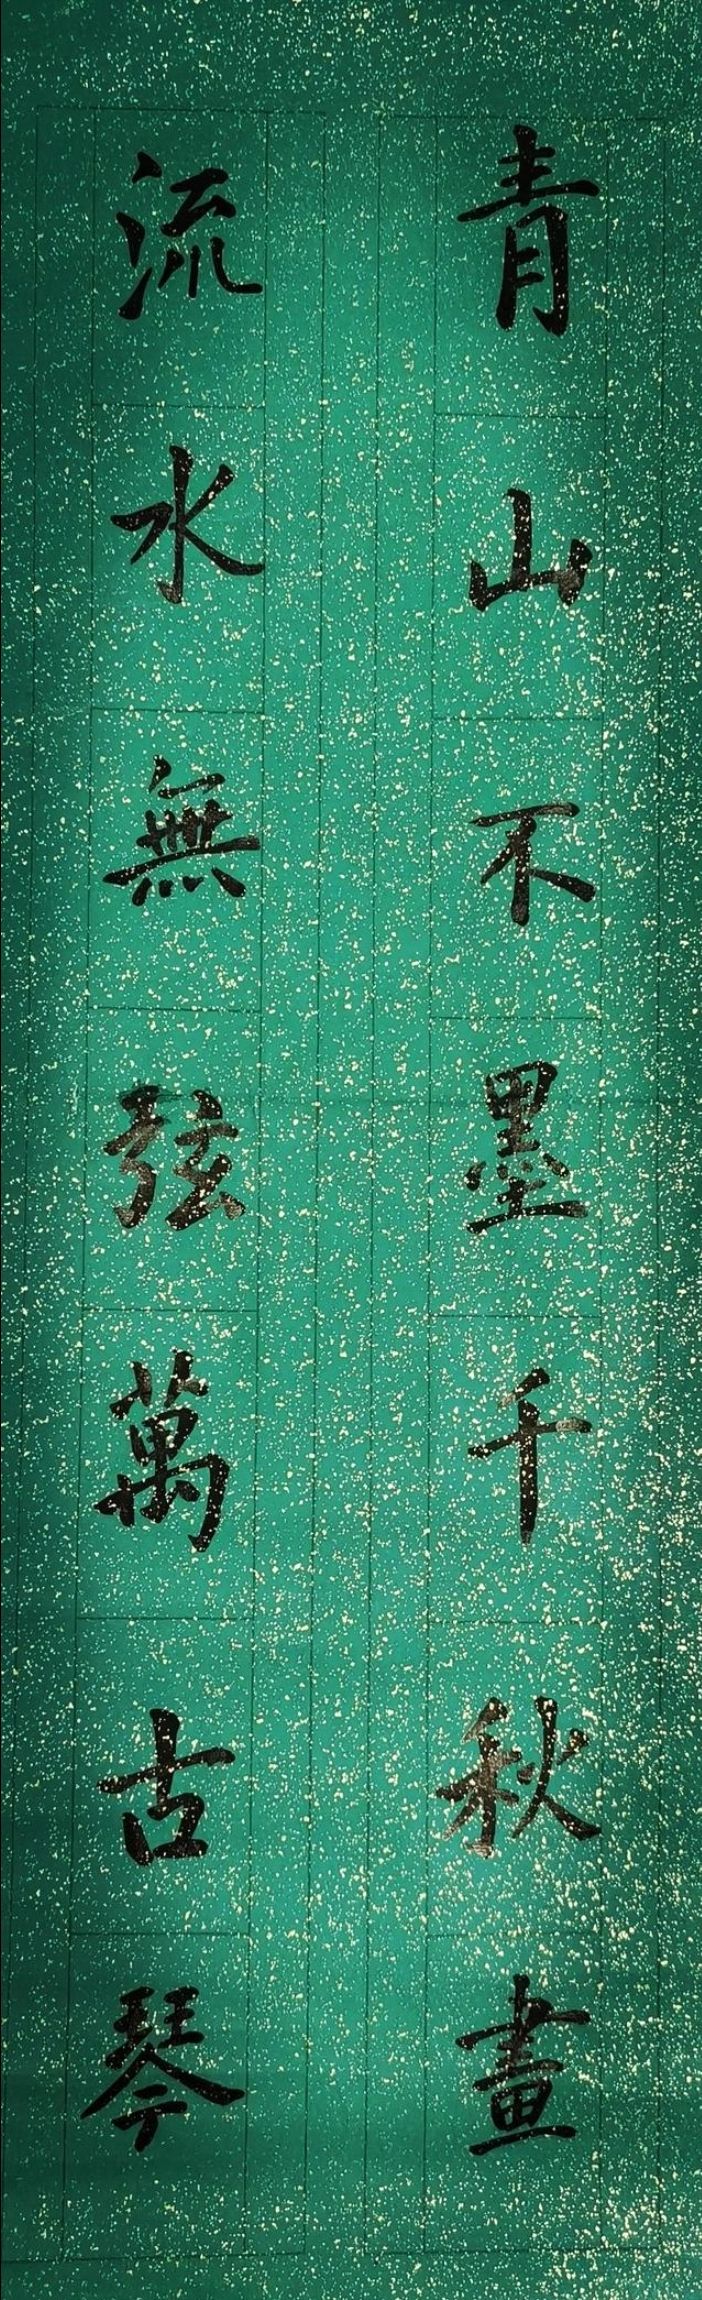 青山不墨千秋畫
流水無弦萬古琴